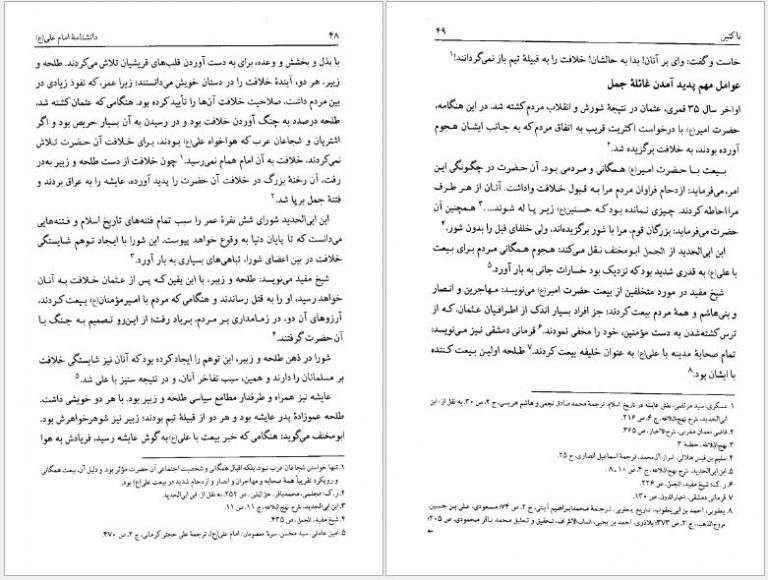 ۴۸
دانشنامهٔ امام علی(ع)
با بذل و بخشش و وعده، برای به دست آوردن قلب‌های قریشیان تلاش می‌کردند. طلحه و
زبیر، هر دو، آیندهٔ خلافت را در دستان خویش می‌دانستند؛ زیرا عمر، که نفوذ زیادی در
بین مردم داشت، صلاحیت خلافت آن‌ها را تأیید کرده بود. هنگامی که عثمان کشته شد،
طلحه درصدد به چنگ آوردن خلافت بود و در رسیدن به آن بسیار حریص بود و اگر
اشتریان و شجاعان عرب که هواخواه علی(ع) بودند، برای خلافت آن حضرت تلاش
نمی‌کردند، خلافت به آن امام همام نمی‌رسید.۱ چون خلافت از دست طلحه و زبیر به‌در
رفت، آن رخنهٔ بزرگ در خلافت آن حضرت را پدید آورده، عایشه را به عراق بردند و
فتنهٔ جمل برپا شد.۲
ابن ابی‌الحدید شورای شش نفرهٔ عمر را سبب تمام فتنه‌های تاریخ اسلام و فتنه‌هایی
می‌دانست که تا پایان دنیا به وقوع خواهد پیوست. این شورا با ایجاد توهم شایستگی
خلافت در بین اعضای شورا، تباهی‌های بسیاری به بار آورد.۳
شیخ مفید می‌نویسد: طلحه و زبیر، با این یقین که پس از عثمان خلافت به آنان
خواهد رسید، او را به قتل رساندند و هنگامی که مردم با امیرمؤمنان(ع) بیعت کردند،
آرزوهای آن دو، در زمامداری بر مردم، برباد رفت؛ از این‌رو تصمیم به جنگ با
آن حضرت گرفتند.۴
شورا در ذهن طلحه و زبیر، این توهم را ایجاد کرده بود که آنان نیز شایستگی خلافت
بر مسلمانان را دارند و همین، سبب تفاخر آنان، و در نتیجه ستیز با علی شد.۵
عایشه نیز همراه و طرفدار مطامع سیاسی طلحه و زبیر بود. با هر دو خویشی داشت.
طلحه عموزادهٔ پدر عایشه بود و هر دو از قبیلهٔ تیم بودند؛ زبیر نیز شوهرخواهرش بود.
ابومخنف می‌گوید: هنگامی که خبر بیعت با علی(ع) به گوش عایشه رسید، فریادش به هوا
۱. تنها خواستن شجاعان عرب نبود، بلکه اقبال همگانی و شخصیت اجتماعی آن حضرت مؤثر بود. و دلیل آن، بیعت همگانی
و رویکرد تقریباً همهٔ صحابه و مهاجران و انصار و ازدحام شدید در بیعت علی(ع) بود.
۲. ر.ک: مجلسی، محمدباقر، حق‌الیقین، ص ۲۵۲، به نقل از: ابن ابی‌الحدید.
۳. ابن ابی‌الحدید، شرح نهج‌البلاغه، ج ۱۱، ص ۱۱
۴. شیخ مفید، الجمل، ص ۴۳۵.
۵. امین عاملی، سید محسن، سیرهٔ معصومان: امام علی(ع)، ترجمهٔ علی حجتی کرمانی، ج ۲، ص ۴۷۰.
ناکثین
۴۹
خاست و گفت: وای بر آنان! بدا به حالشان! خلافت را به قبیلهٔ تیم باز نمی‌گردانند!۱
عوامل مهم پدید آمدن غائلهٔ جمل
اواخر سال ۳۵ قمری، عثمان در نتیجهٔ شورش و انقلاب مردم کشته شد. در این هنگامه،
حضرت امیر(ع) با درخواست اکثریت قریب به اتفاق مردم که به جانب ایشان هجوم
آورده بودند، به خلافت برگزیده شد.۲
بیعت با حضرت امیر(ع) همگانی و مردمی بود. آن حضرت در چگونگی این
امر، می‌فرماید: ازدحام فراوان مردم مرا به قبول خلافت واداشت. آنان از هر طرف
مرا احاطه کردند. چیزی نمانده بود که حسنین(ع) زیر پا له شوند....۳ همچنین آن
حضرت می‌فرماید: بزرگان قوم، مرا با شور برگزیده‌اند، ولی خلفای قبل را بدون شور.۴
ابن ابی‌الحدید از الجمل ابومخنف نقل می‌کند: هجوم همگانی مردم برای بیعت
با علی(ع) به قدری شدید بود که نزدیک بود خسارات جانی به بار آورد.۵
شیخ مفید در مورد متخلفین از بیعت حضرت امیر(ع) می‌نویسد: مهاجرین و انصار
و بنی‌هاشم و همهٔ مردم بیعت کردند؛ جز افراد بسیار اندک از اطرافیان عثمان، که از
ترس کشته‌شدن به دست مؤمنین، خود را مخفی نمودند.۶ قرمانی دمشقی نیز می‌نویسد:
تمام صحابهٔ مدینه با علی(ع) به عنوان خلیفه بیعت کردند.۷ طلحه اولین بیعت کننده
با ایشان بود.۸
۱. عسکری، سید مرتضی، نقش عایشه در تاریخ اسلام، ترجمهٔ محمدصادق نجمی و هاشم هریسی، ج ۲، ص ۳۰، به نقل از: ابن
ابی‌الحدید، شرح نهج‌البلاغه، ج ۶، ص ۲۱۶.
۲. قاضی نعمان مغربی، شرح‌الاخبار، ص ۳۶۵.
۳. نهج‌البلاغه، خطبهٔ ۳
۴. سلیم بن قیس هلالی، اسرار آل‌محمد، ترجمهٔ اسماعیل انصاری، ح ۲۵
۵. ابن ابی‌الحدید، شرح نهج‌البلاغه، ج ۴، ص ۱۰ـ۸.
۶. ر.ک: شیخ مفید، الجمل، ص ۲۲۶.
۷. قرمانی دمشقی، اخبارالدول، ص ۱۳۰.
۸. یعقوبی، احمد بن ابی‌یعقوب، تاریخ یعقوبی، ترجمهٔ محمدابراهیم آیتی، ج ۲، ص ۷۴؛ مسعودی، علی بن حسین،
مروج‌الذهب، ج ۲، ص ۳۷۳؛ بلاذری، احمد بن یحیی، انساب‌الاشراف، تحقیق و تعلیق محمد باقر محمودی، ص ۲۰۵؛
←